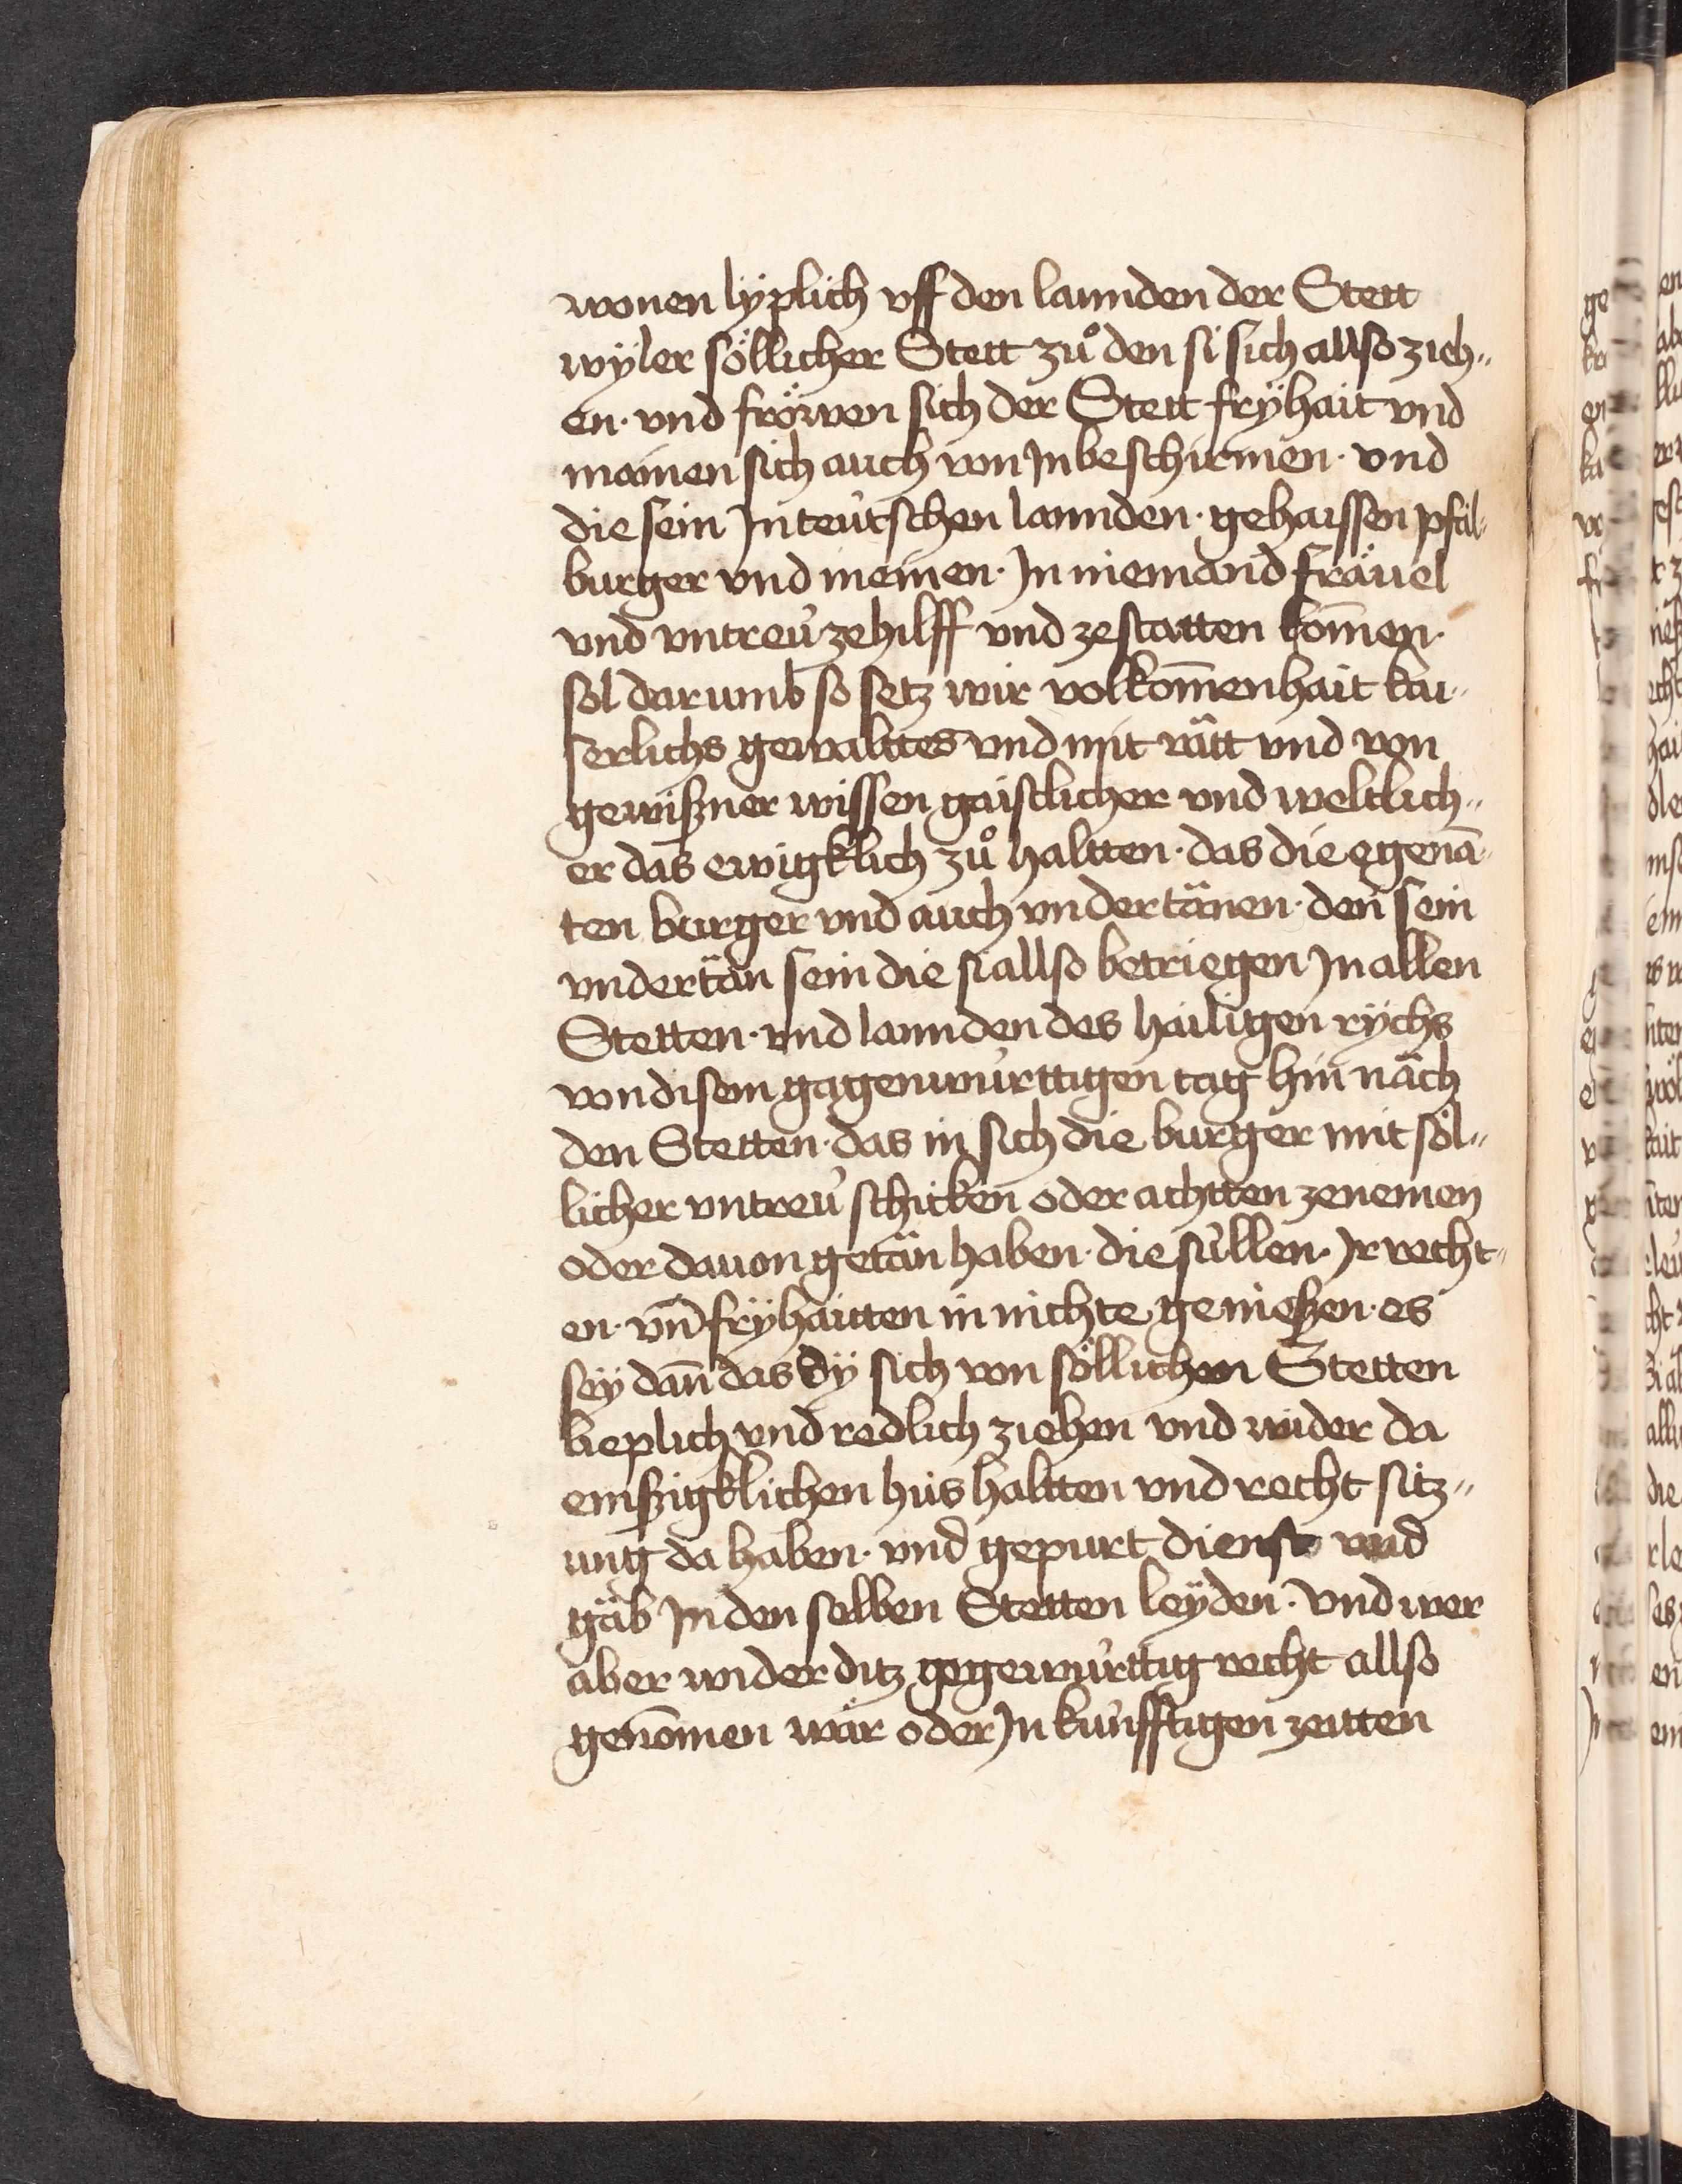 wonen lÿplich vff den lannden der Stett
wÿler söllicher Stett zů den si sich allso zieh„
en · vnd fröwen sich der Stett frÿhait vnd
mainen sich auch von Jn beschirmen · vnd
die sein Jn teutschen lannden · gehaissen pfal„
burger vnd meinen · Jn niemand fräuel
vnd vntreu zehilff vnd zestatten kom̄en ·
sol darumb so setz wir volkom̄enhait kai„
serlichs gewalttes vnd mit rätt vnd von
gewißner wissen gaistlicher vnd weltlich„
er das ewigklich zů haltten · das die egenā
ten burger vnd auch vndertänen · den sein
vndertän sein die si allso betriegen Jn allen
Stetten · vnd lannden des hailigen rÿchs
von disem gagenwürttigen tag hin näch
den Stetten · das in sich die burger mit söl„
licher vntreu schicken oder achtten zenemen
oder dauon getän haben · die süllen · Jr recht„
en · vn̄ frÿhaitten in nichte genießen · es
seÿ dan̄ das dÿ sich von söllichen Stetten
lieplich vnd redlich ziehen vnd wider da
emßigklichen hus haltten vnd recht sitz„
ung da haben · vnd gepurt dienst vnd
gäb Jn den selben Stetten leÿden · Vnd wer
aber wider ditz gegewürttig recht allso
genōmen wär oder Jn kunfftigen zeitten